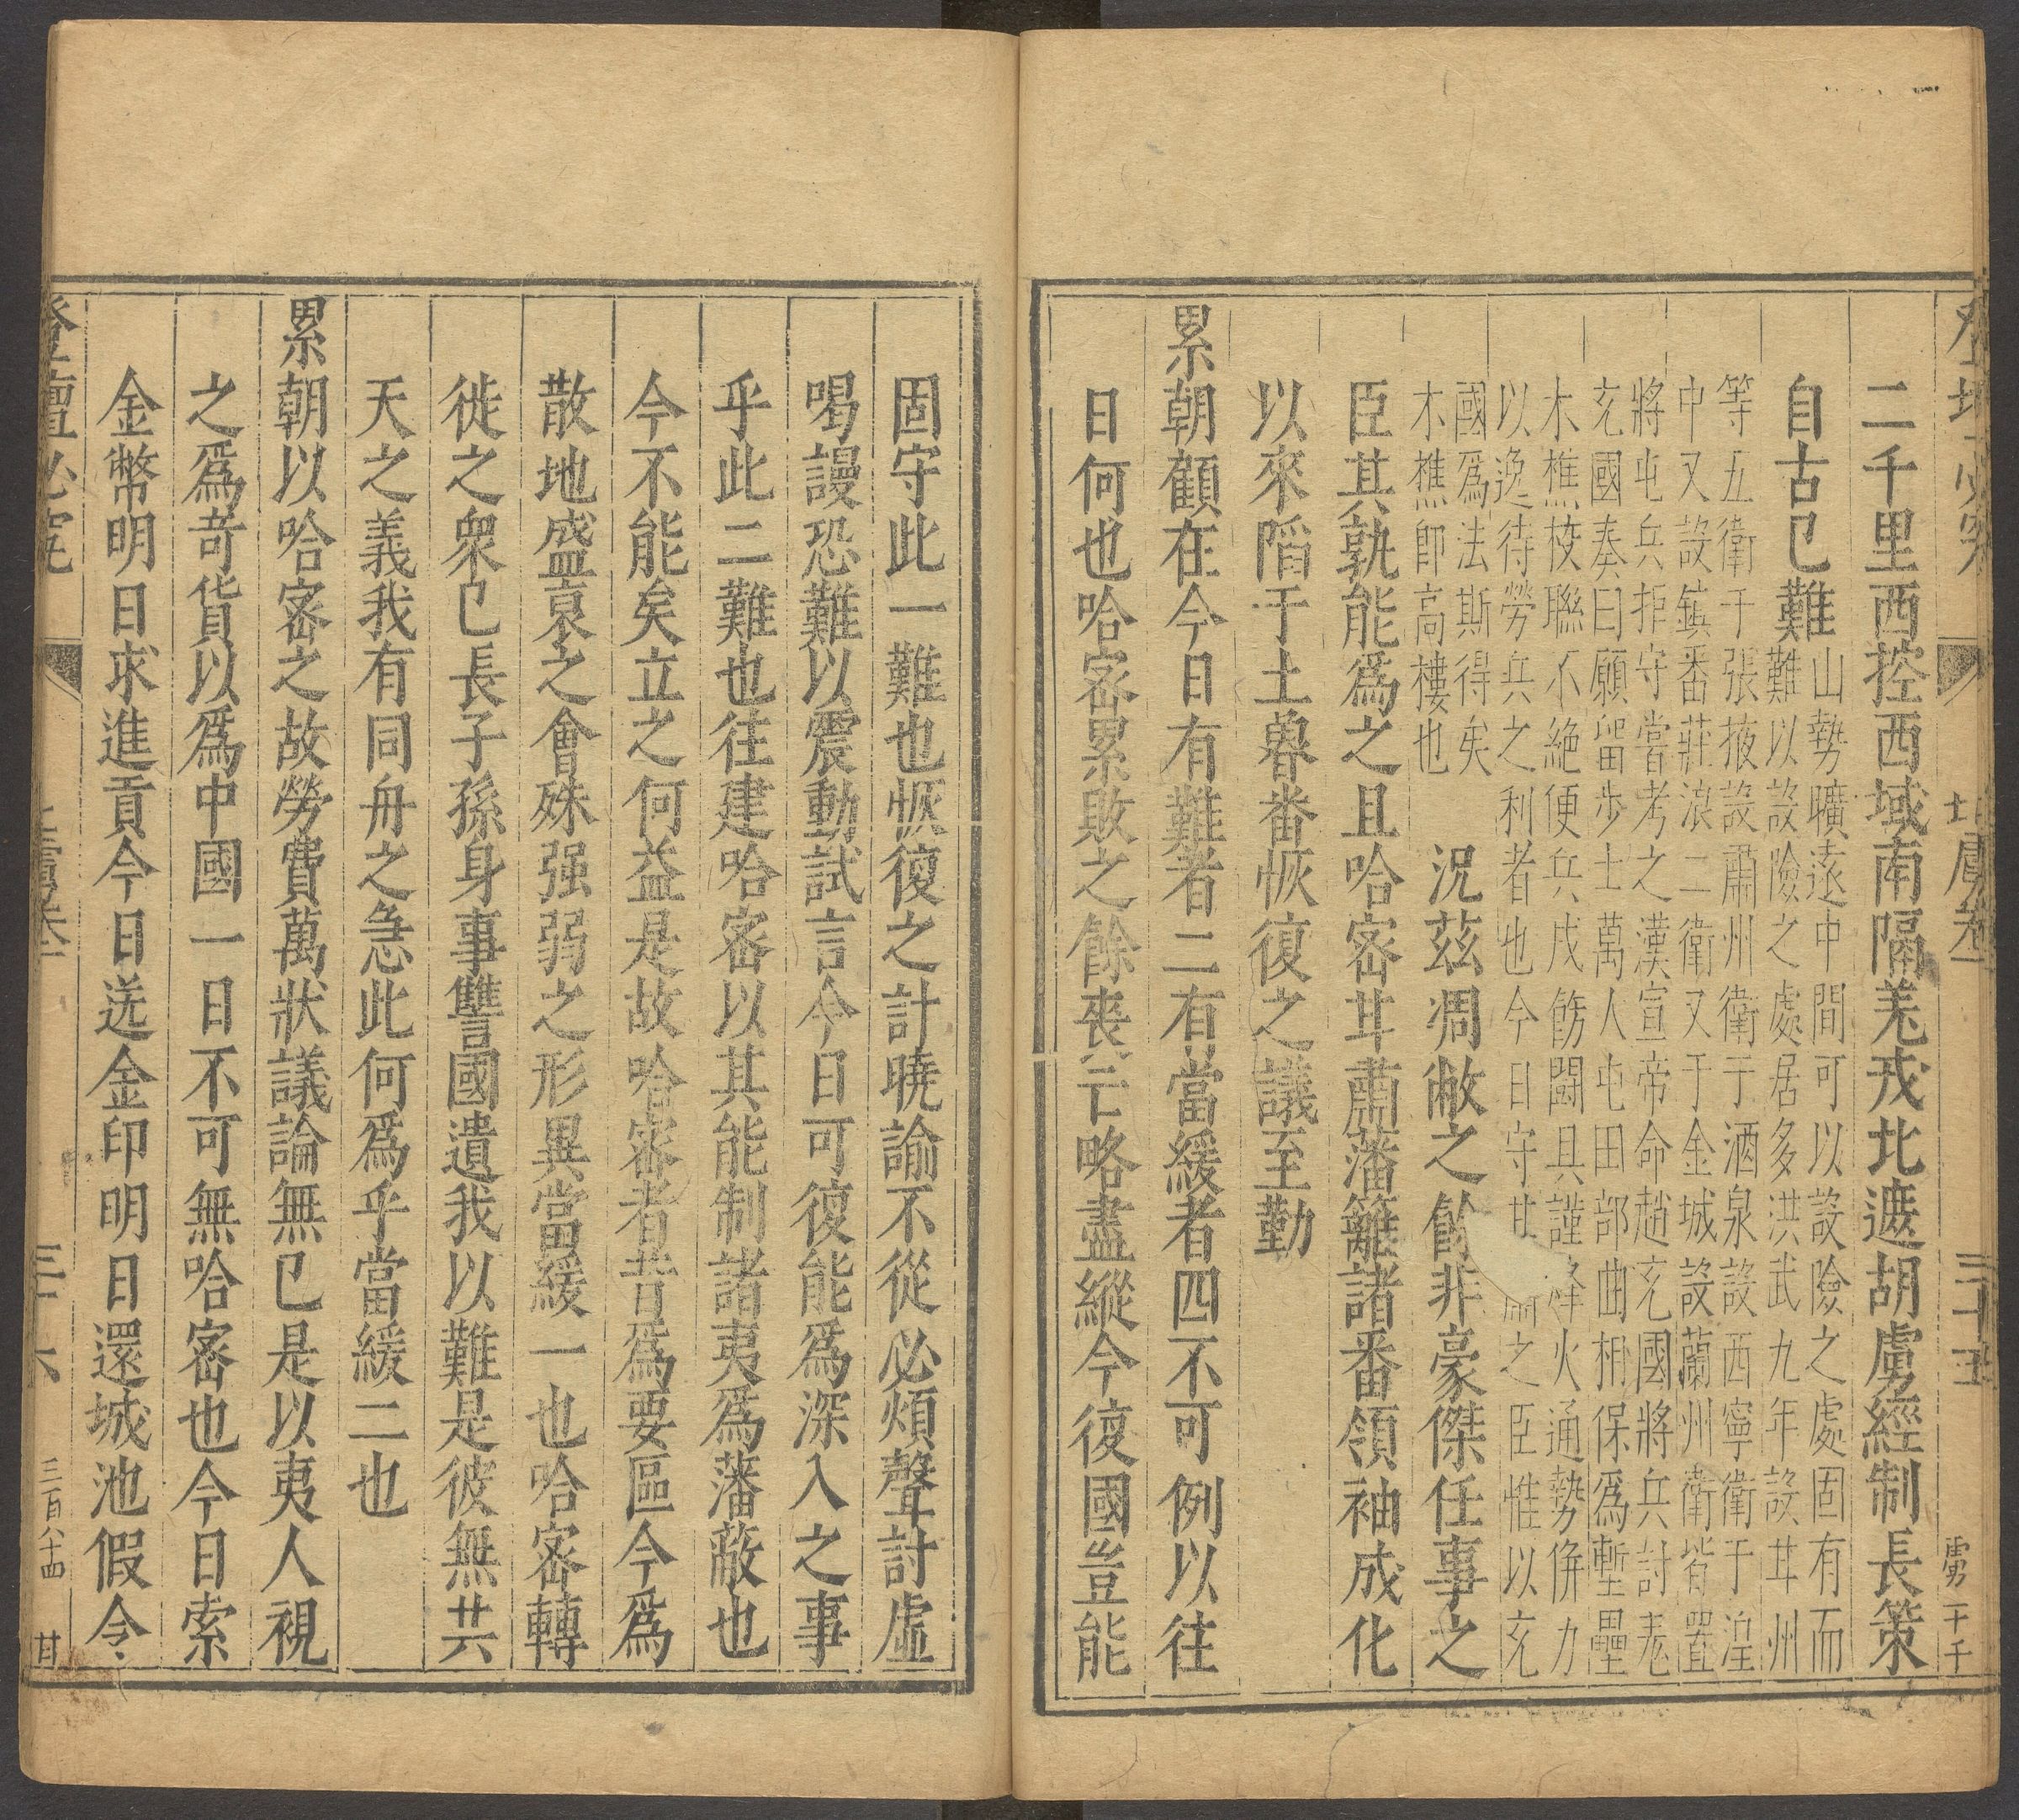 北虜卷
三十五
虜一千千
二千里西控西域南隔羗戎北遮胡虜經制長策
自古已難
山勢曠遠中間可以設險之處固有而
難以設險之處居多洪武九年設甘州
等五衛于張掖設肅州衛于酒泉設西寧衛于湟
中又設鎮番莊浪二衛又于金城設蘭州衛皆置
將屯兵拒守嘗考之漢宣帝命趙充國將兵討羌
充國奏曰願留步士萬人屯田部曲相保爲塹壘
木樵校聯不絶便兵戍飭鬬具謹烽火通勢倂力
以逸待勞兵之利者也今日守甘肅之臣惟以充
國爲法斯得矣
木樵卽高樓也
況茲凋敝之餘非豪傑任事之
臣其孰能爲之且哈密甘肅藩籬諸番領袖成化
以來䧟于土魯番恢復之議至勤
累朝顧在今日有難者二有當緩者四不可例以往
日何也哈密累敗之餘喪亡略盡縱今復國豈能
固守此一難也恢復之計曉諭不從必煩聲討虛
喝謾恐難以震動試言今日可復能爲深入之事
乎此二難也往建哈密以其能制諸夷爲藩敵也
今不能矣立之何益是故哈密者昔爲要區今爲
散地盛衰之會殊强弱之形異當緩一也哈密轉
徙之衆已長子孫身事讐國遺我以難是彼無共
天之義我有同舟之急此何爲乎當緩二也
累朝以哈密之故勞費萬狀議論無已是以夷人視
之爲奇貨以爲中國一日不可無哈密也今日索
金幣明日求進貢今日送金印明日還城池假令
登壇必究
北虜卷
三十六
三百八十四
甘